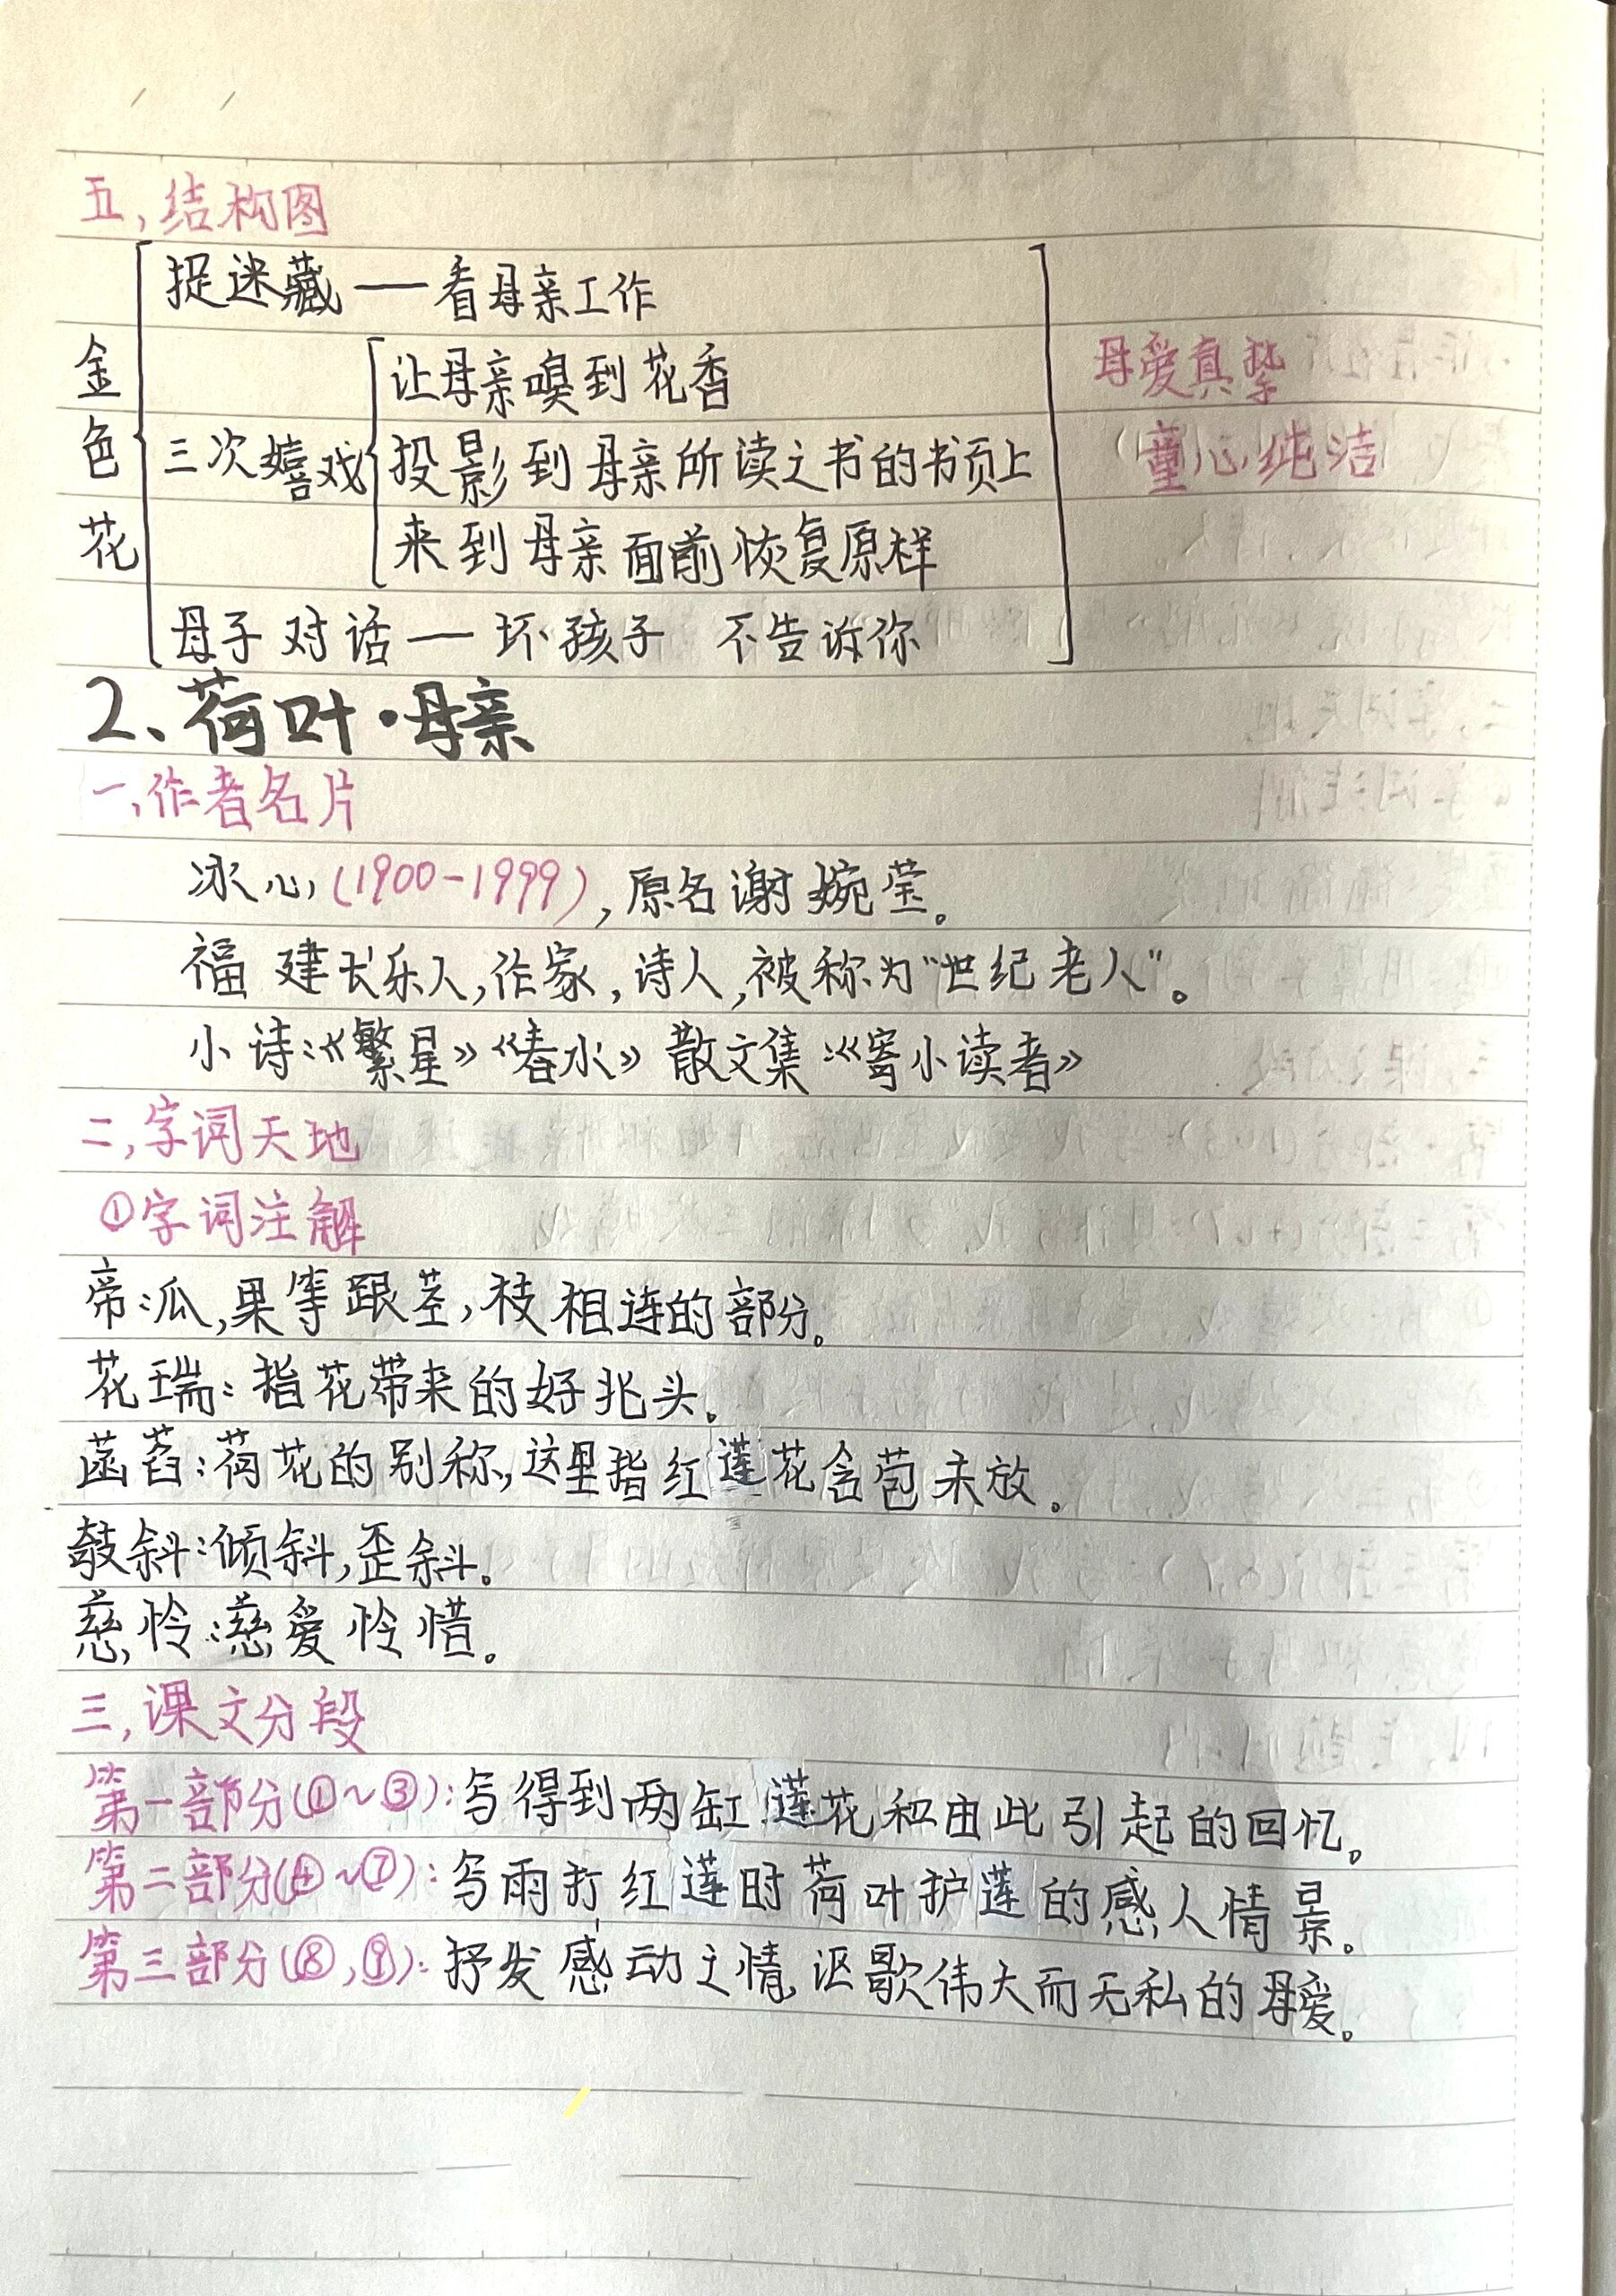 五,结构图
金色花
捉迷藏——看母亲工作
三次嬉戏
让母亲嗅到花香
投影到母亲所读之书的书页上
来到母亲面前恢复原样
母子对话——坏孩子 不告诉你
母爱真挚
童心纯洁
2、荷叶·母亲
一,作者名片
冰心(1900-1999),原名谢婉莹。
福建长乐人,作家,诗人,被称为“世纪老人”。
小诗:《繁星》《春水》散文集:《寄小读者》
二,字词天地
①字词注解
帝:瓜,果等跟茎,枝相连的部分。
花瑞:指花带来的好兆头。
菡萏:荷花的别称,这里指红莲花含苞未放。
敧斜:倾斜,歪斜。
慈怜:慈爱怜惜。
三,课文分段
第一部分(①~③):写得到两缸莲花和由此引起的回忆。
第二部分(④~⑦):写雨打红莲时荷叶护莲的感人情景。
第三部分(⑧,⑨):抒发感动之情,讴歌伟大而无私的母爱。